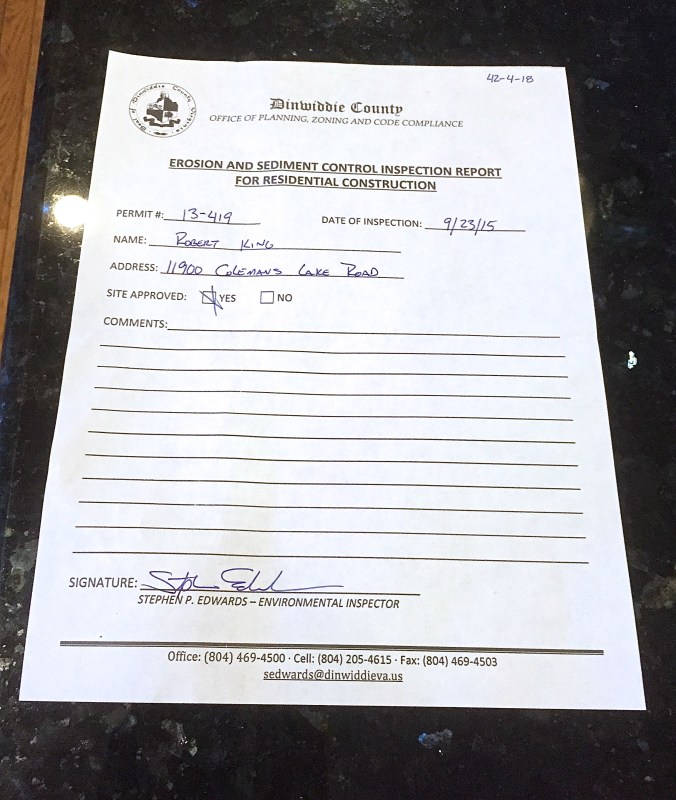 42-4-18
Seal of Dinwiddie County, Virginia
Dinwiddie County
OFFICE OF PLANNING, ZONING AND CODE COMPLIANCE
EROSION AND SEDIMENT CONTROL INSPECTION REPORT
FOR RESIDENTIAL CONSTRUCTION
PERMIT #: 13-419 DATE OF INSPECTION: 9/23/15
NAME: ROBERT KING
ADDRESS: 11900 COLEMANS LAKE ROAD
SITE APPROVED: YES NO
COMMENTS:
SIGNATURE:
STEPHEN P. EDWARDS – ENVIRONMENTAL INSPECTOR
Office: (804) 469-4500 · Cell: (804) 205-4615 · Fax: (804) 469-4503
sedwards@dinwiddieva.us